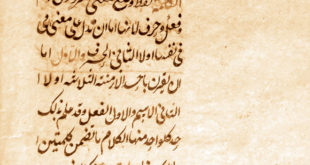 وفعل وحرف لانها اما ان تدل على معنى فى
فى نفسها اولا الثانى الحرف والاول اما
ان يقترن باحد الازمنة الثلاثة اولا
الثانى الاسم والاول الفعل وقد علم بذلك
حد كل واحد منها الكلام ما تضمن كلمتين